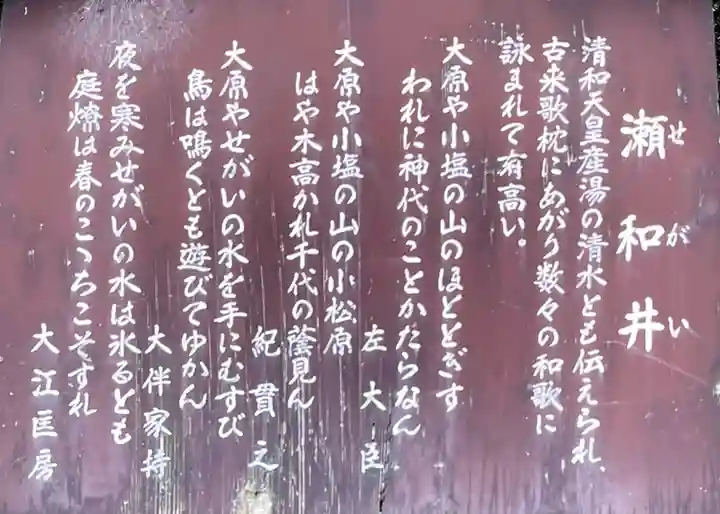 瀬和井
せがい
清和天皇産湯の清水とも伝えられ、
古来歌枕にあがり数々の和歌に
詠まれて有高い。
大原や小塩の山のほととぎす
われに神代のことかたらなん
左大臣
大原や小塩の山の小松原
はや木高かれ千代の蔭見ん
紀貫之
大原やせがいの水を手にむすび
鳥は鳴くとも遊びてゆかん
大伴家持
夜を寒みせがいの水は氷るとも
庭燎は春のこゝちこそすれ
大江匡房